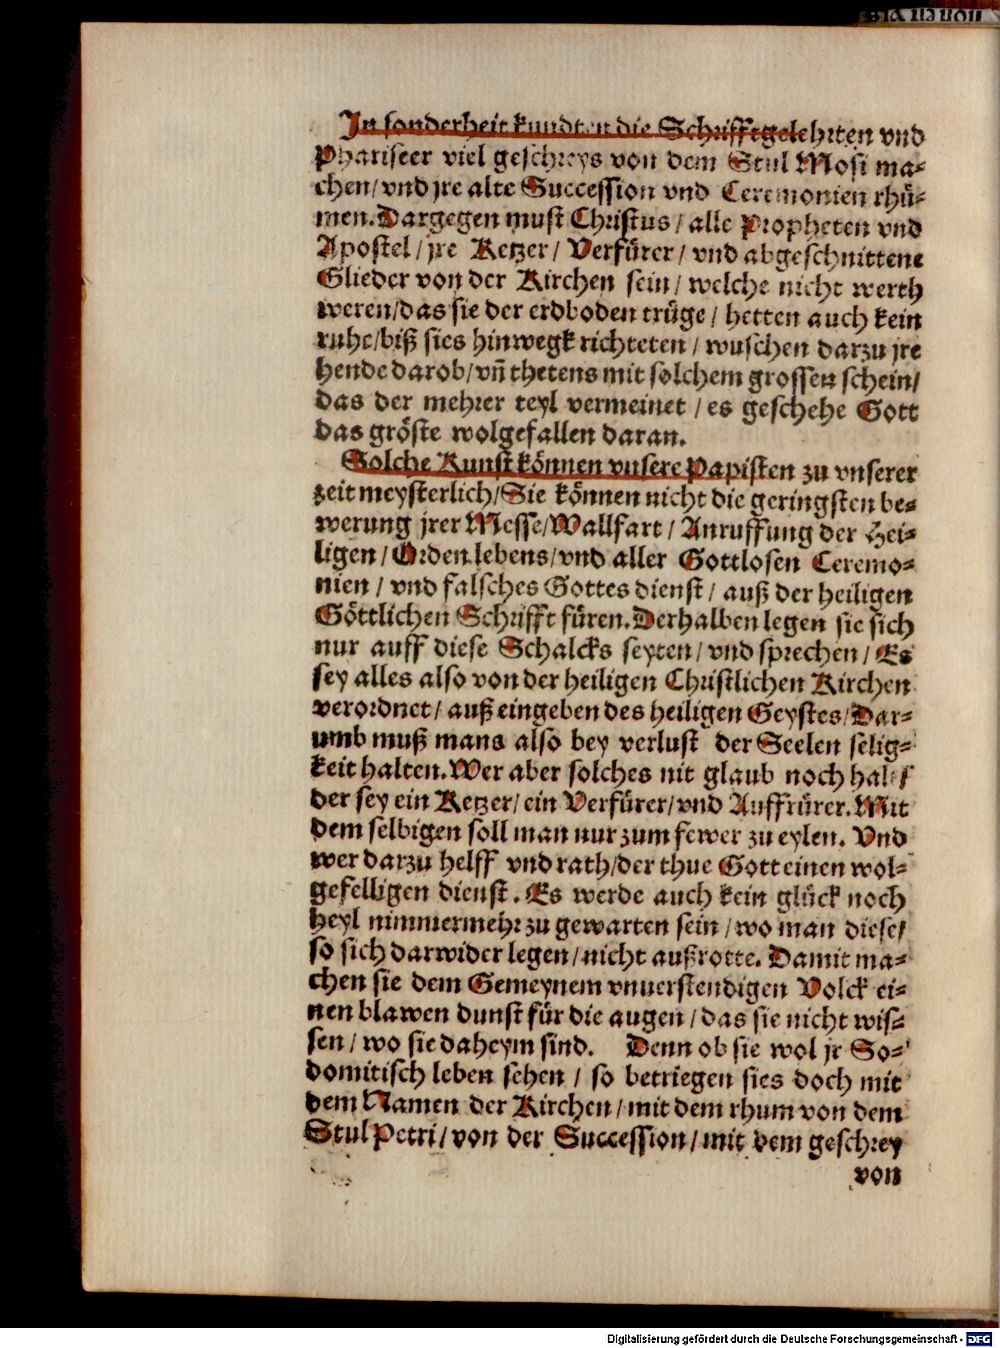 In sonderheit kundten die Schrifftgelehrten vnd
Phariseer viel geschreys von dem Stul Mosi ma-
chen/ vnd jre alte Succession vnd Ceremonien rhü-
men. Dargegen must Christus / alle Propheten vnd
Apostel / jre Ketzer / Verfürer / vnd abgeschnittene
Glieder von der Kirchen sein / welche nicht werth
weren/das sie der erdboden trüge / hetten auch kein
ruhe/biß sies hinwegk richteten / wuschen darzu jre
hende darob/ vñ thetens mit solchem grossen schein/
das der mehrer teyl vermeinet / es geschehe Gott
das gröste wolgefallen daran.
Solche Kunst können vnsere Papisten zu vnserer
zeit meysterlich/Sie können nicht die geringsten be-
werung jrer Messe/Wallfart / Anruffung der Hei-
ligen / Orden lebens/vnd aller Gottlosen Ceremo-
nien / vnd falsches Gottes dienst / auß der heiligen
Göttlichen Schrifft füren. Derhalben legen sie sich
nur auff diese Schalcks seyten / vnd sprechen / Es
sey alles also von der heiligen Christlichen Kirchen
verordnet / auß eingeben des heiligen Geystes/Dar-
umb muß mans also bey verlust der Seelen selig-
keit halten. Wer aber solches nit glaub noch halt/
der sey ein Ketzer/ ein Verfürer/ vnd Auffrürer. Mit
dem selbigen soll man nur zum fewer zu eylen. Vnd
wer darzu helff vnd rath/der thue Gott einen wol-
gefelligen dienst. Es werde auch kein glück noch
heyl nimmermehr zu gewarten sein / wo man diese/
so sich darwider legen / nicht außrotte. Damit ma-
chen sie dem Gemeynem vnuerstendigen Volck ei-
nen blawen dunst für die augen / das sie nicht wis-
sen / wo sie daheym sind. Denn ob sie wol jr So-
domitisch leben sehen / so betriegen sies doch mit
dem Namen der Kirchen / mit dem rhum von dem
Stul Petri / von der Succession / mit dem geschrey
von
Digitalisierung gefördert durch die Deutsche Forschungsgemeinschaft - DFG